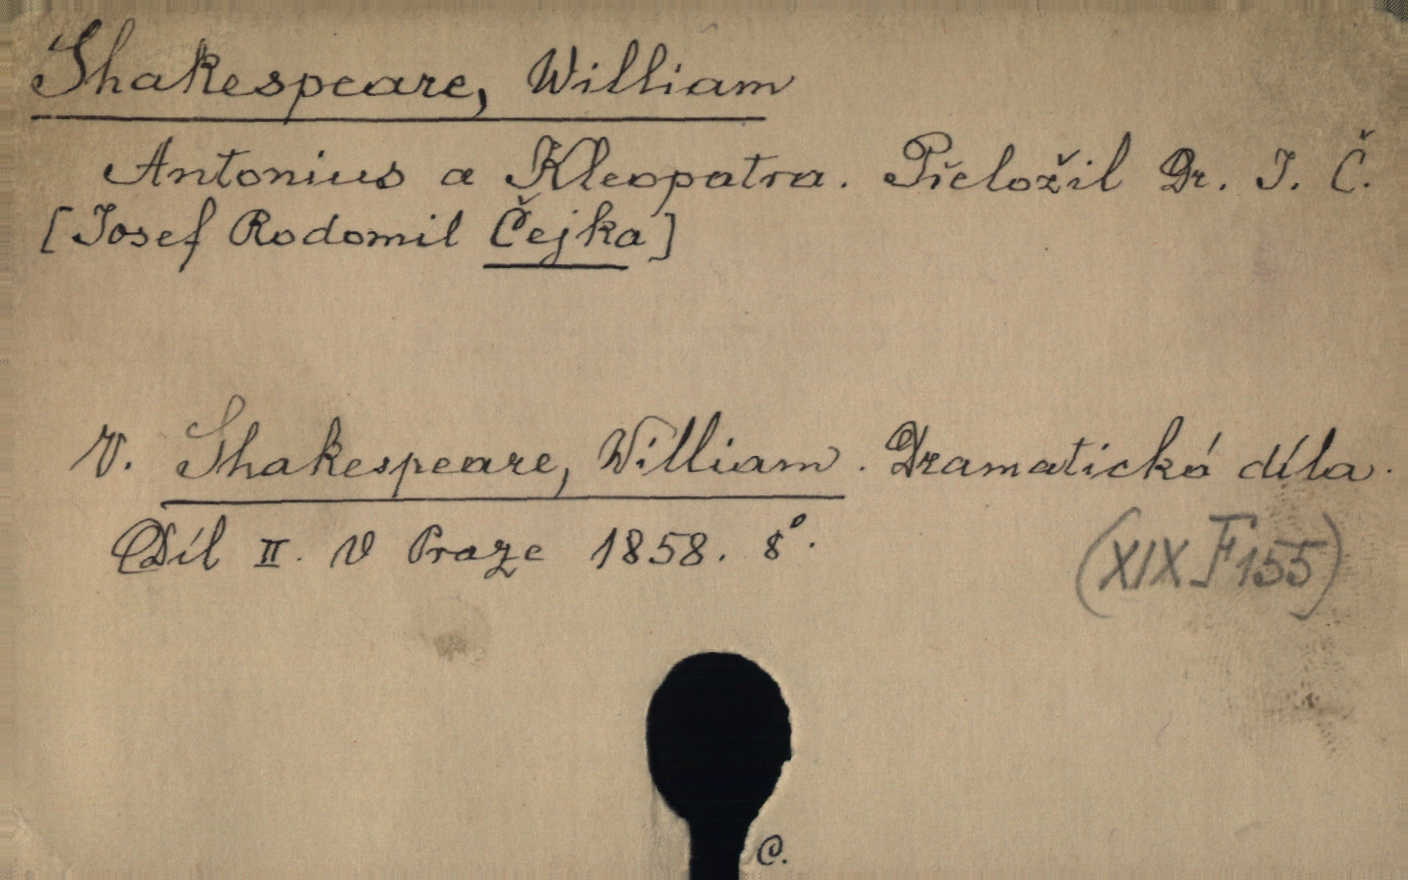 Shakespeare, William
Antonius a Kleopatra. Přeložil Dr. J. Č.
[Josef Rodomil Čejka]
V. Shakespeare, William. Dramatická díla.
Díl II. V Praze 1858. 8°.
(XIX F 155)
C.